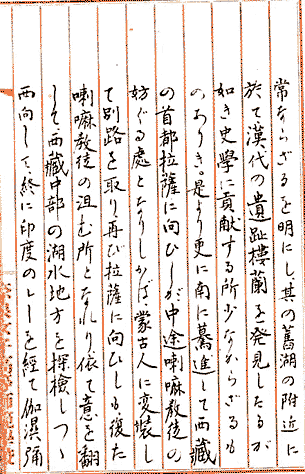 常ならざるを明にし其の舊湖の附近に
於て漢代の遺趾樓蘭を発見したるが
如き史學に貢献する所少なからざるも
のありき。是より更に南に驀進して西藏
の首都拉薩に向ひしが中途喇嘛教徒の
妨ぐる處となりしかば蒙古人に変裝し
て別路を取り再び拉薩に向ひしも復た
喇嘛教徒の沮む所となれり依て意を翻
して、西藏中部の湖水地方を探檢しつゝ
西向して、終に印度のレーを経て伽濕彌